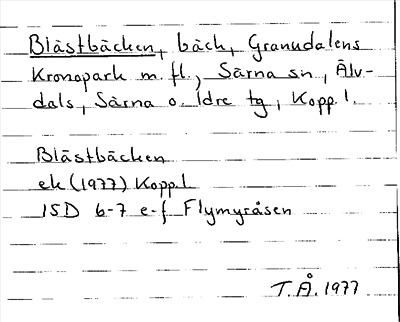 Blästbäcken, bäck, Granudalens
Kronopark m. fl., Särna sn, Älv-
dals, Särna o. Idre tg, Kopp. l.
Blästbäcken
ek (1977) Kopp.l
15D 6-7 e-f Flymyråsen
T.Å. 1977